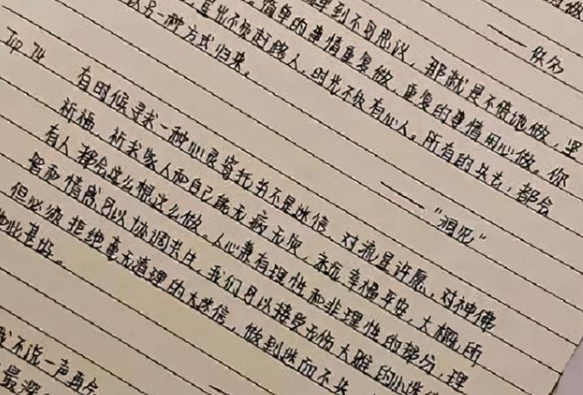 单到不可思议，那就是不停地做，坚
简单的事情重复做，重复的事情用心做。你
星光不负赶路人，时光不负有心人。所有的失去，都会
以另一种方式归来。
Top 74
有时候寻求一种心灵寄托并不是迷信，对流星许愿，对神佛
祈福，祈求家人和自己能无病无灾，永远幸福平安，大概所
有人都会这么想这么做，人心兼有理性和非理性的部分，理
智和情感可以协调共生，我们可以接受无伤大雅的小迷信
但必须拒绝毫无道理的大迷信，做到迷而不失
如此甚好。
我不说一声再
最深